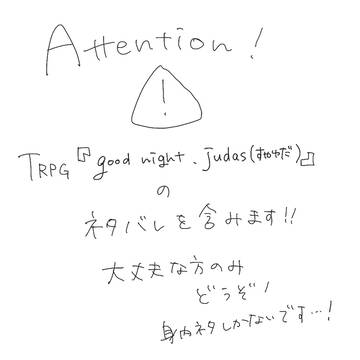 Attention!
!
TRPG『good night、judas(すやゆだ)』
の
ネタバレを含みます!!
大丈夫な方のみ
どうぞ!
身内ネタしかないです…!